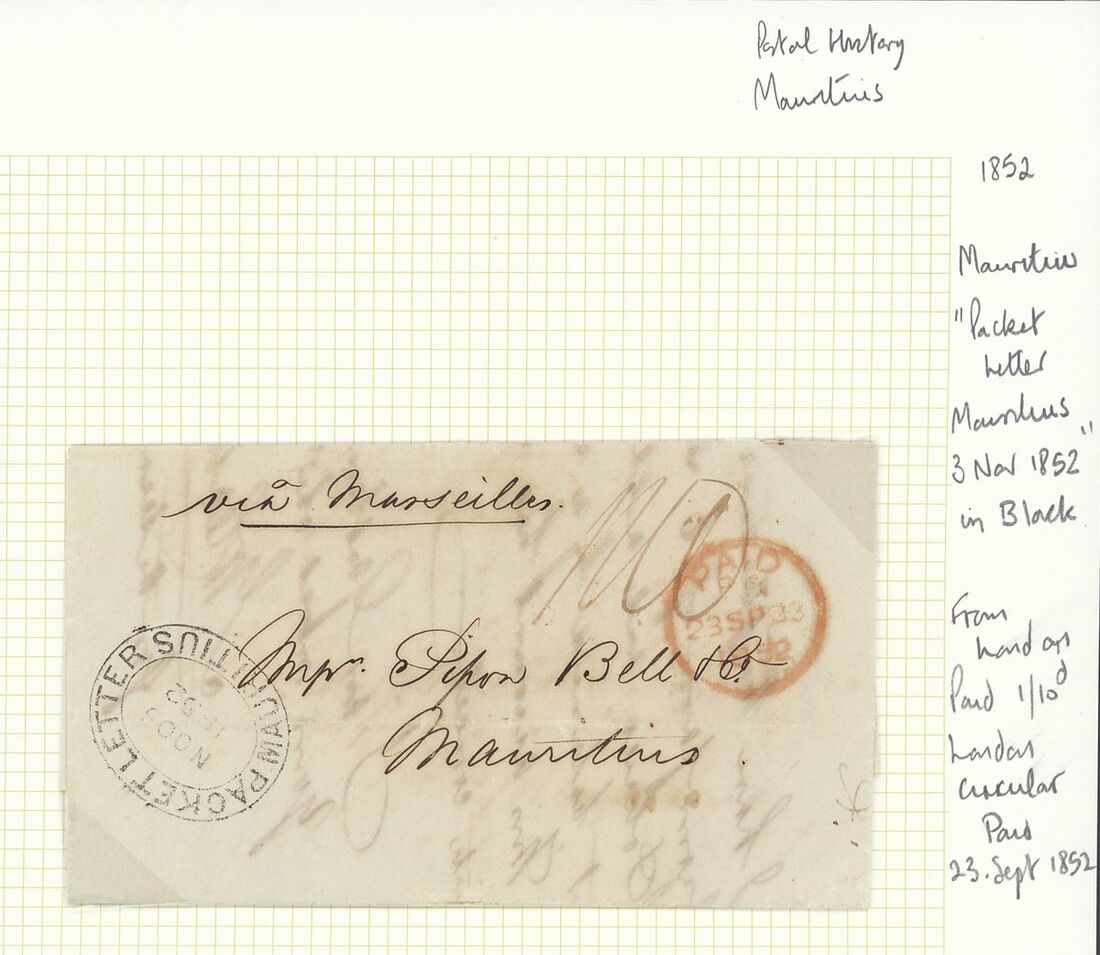 Postal History
Mauritius
1852
Mauritius
"Packet
Letter
Mauritius
3 Nov 1852"
in Black
From
London
Paid 1/10d
London
circular
Paid
23. Sept 1852
viâ Marseilles.
1/10
PAID
23 SP 23
1852
Messrs. Pipon Bell & Co.
Mauritius.
PACKET LETTER MAURITIUS
NO 03
1852